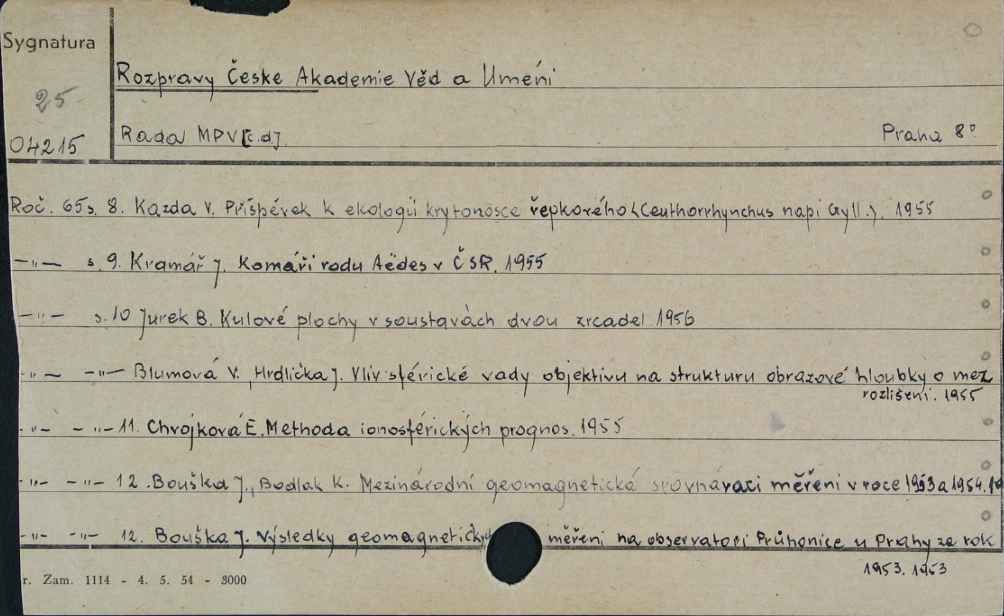 Sygnatura
25
04215
Rozpravy Česke Akademie Věd a Umeńi
Rada MPV [c.d]. Praha 8°
Roč. 65 s. 8. Kazda V. Příspěvek k ekologii krytonosce řepkového (Ceuthorrhynchus napi Gyll.). 1955
-„- s. 9. Kramář J. Komáři rodu Aëdes v ČSR. 1955
-„- s. 10 Jurek B. Kulové plochy v soustavách dvou zrcadel 1956
-„- -„- Blumová V., Hrdlička J. Vliv sférické vady objektivu na strukturu obrazové hloubky o mez
rozlišeni. 1955
-„- -„- 11. Chvojková E. Methoda ionosférických prognos. 1955
-„- -„- 12. Bouška J., Bodlak K. Mezinárodní geomagnetická srovnávací měřeni v roce 1953 a 1954.
-„- -„- 12. Bouška J. Výsledky geomagnetických měřeni na observatoři Průhonice u Prahy za rok
1953. 1953
r. Zam. 1114 - 4. 5. 54 - 3000